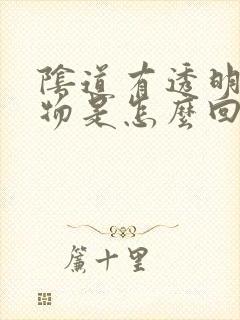 陰道有透明
物是怎麼回
簾十里